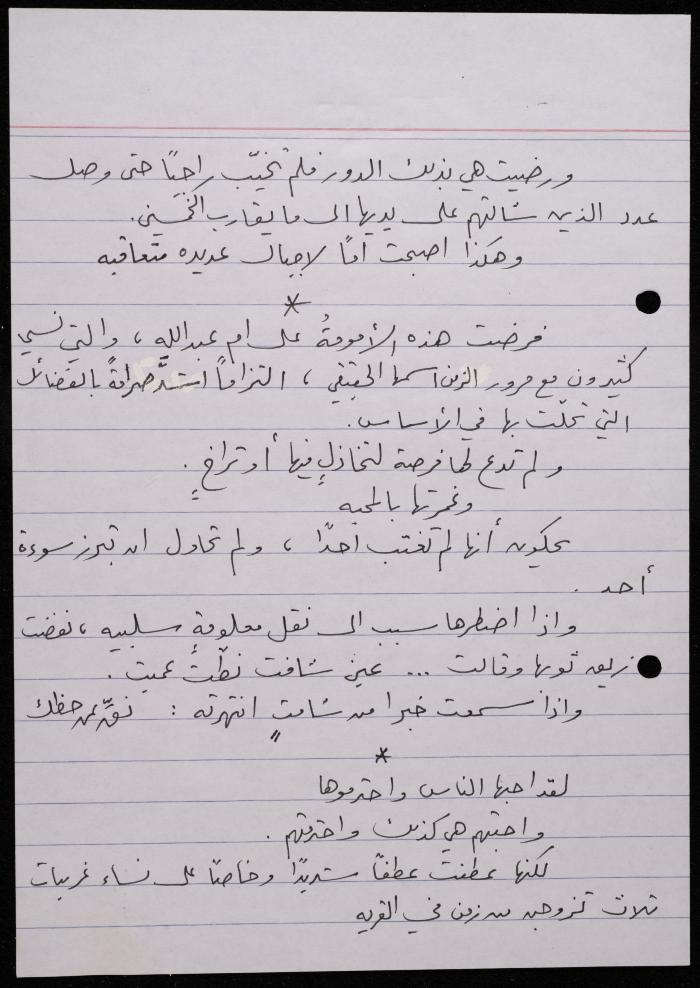 ورضيت هي بذلك الدور فلم تخيّب راجيًا حتى وصل
عدد الذين شالتهم على يديها الى ما يقارب الخمسين.
وهكذا اصبحت امًا لاجيال عديده متعاقبه
*
فرضت هذه الأمومةُ على ام عبدالله ، والتي نسي
كثيرون مع مرور الزمن اسمها الحقيقي ، التزامًا اشدَّ صرامةً بالفضائل
التي تحلّت بها في الأساس.
ولم تدع لها فرصة لتخاذلٍ فيها أو تراخٍ.
وغمرتها بالمحبه
يحكون أنها لم تغتب أحدًا ، ولم تحاول ان تبرز سوءة
أحد .
واذا اضطرها سبب الى نقل معلومةٍ سلبيه ، نفضت
زيق ثوبها وقالت ... عينٍ شافت نطّت عميت .
واذا سمعت خبرا من شامتٍ انتهرته : نقّ من حظك "
*
لقد احبها الناس واحترموها
واحبتهم هي كذلك واحترمتهم .
لكنها عطفت عطفًا شديدًا وخاصًا على نساء غريبات
ثلاث تزوجن من زمن في القريه